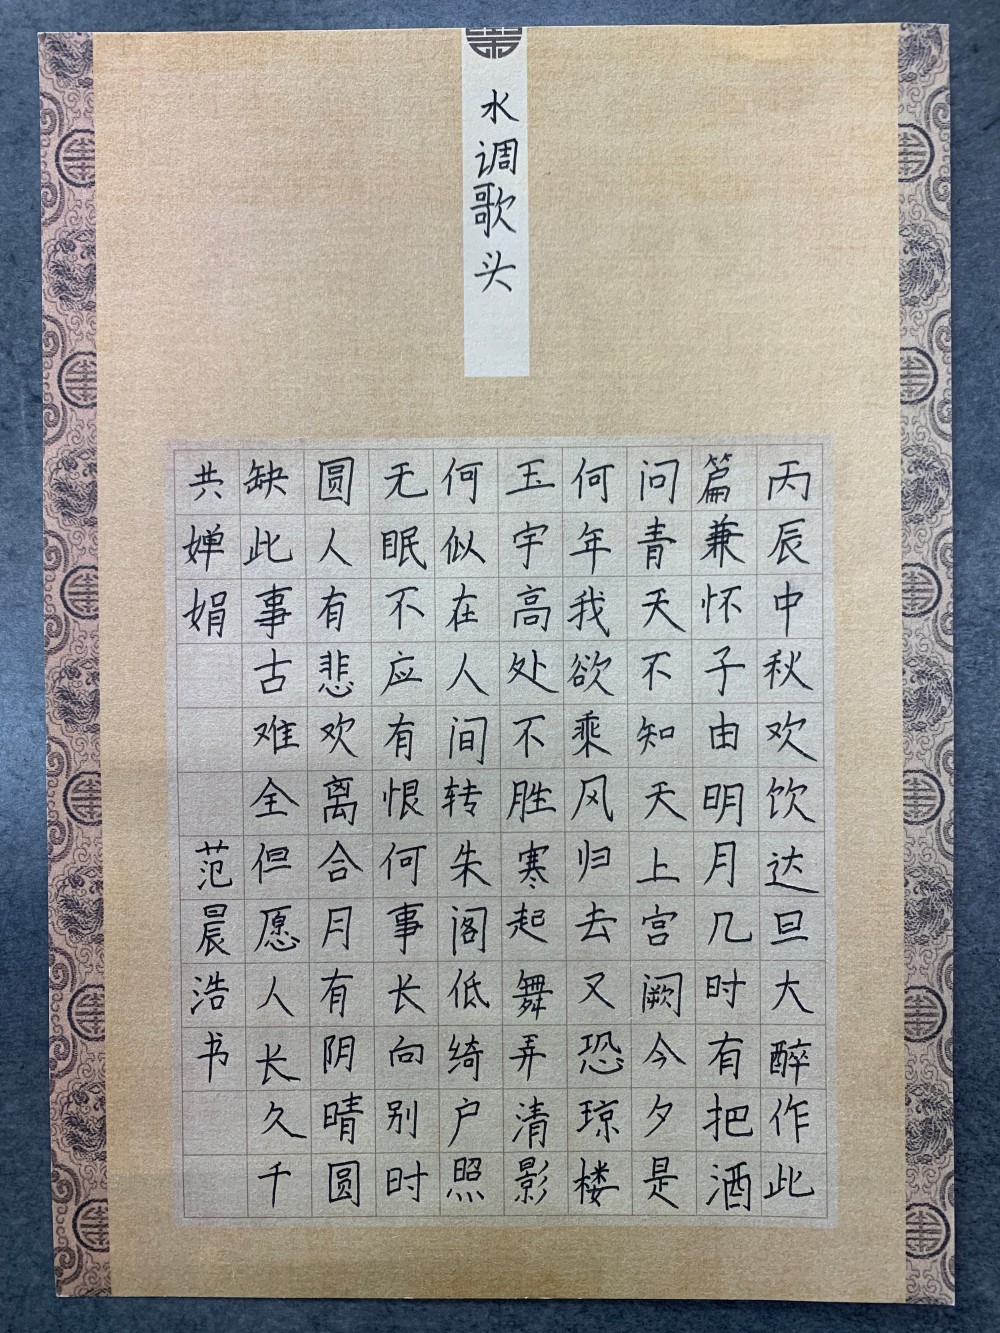 水调歌头
丙辰中秋欢饮达旦大醉作此
篇兼怀子由明月几时有把酒
问青天不知天上宫阙今夕是
何年我欲乘风归去又恐琼楼
玉宇高处不胜寒起舞弄清影
何似在人间转朱阁低绮户照
无眠不应有恨何事长向别时
圆人有悲欢离合月有阴晴圆
缺此事古难全但愿人长久千
共婵娟 范晨浩书